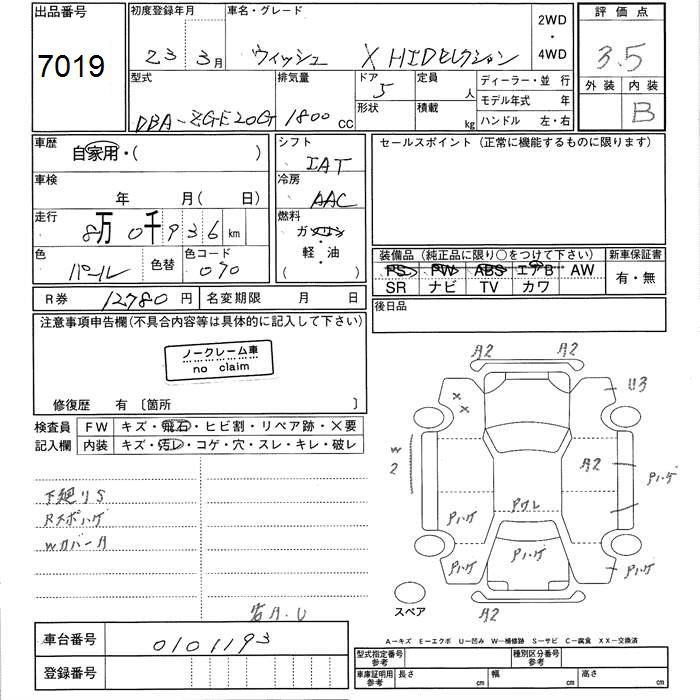 出品番号
7019
初度登録年月
23 3月
車名・グレード
ウィッシュ X HIDセレクション
2WD
・
4WD
評価点
3.5
外装 内装
B
型式
DBA-ZGE20G
排気量
1800 CC
ドア
5
形状
定員
人
積載
kg
ディーラー・並行
モデル年式 年
ハンドル 左・右
車歴
自家用・( )
車検
年 月( 日)
走行
8万0千936km
色
パール
色替
色コード
070
R券 12780円
名変期限 月 日
シフト
IAT
冷房
AAC
燃料
ガソリン
・
軽・油
( )
セールスポイント(正常に機能するものに限ります)
装備品(純正品に限り○をつけて下さい)
PS PW ABS エアB AW
SR ナビ TV カワ
新車保証書
有・無
後日品
注意事項申告欄(不具合内容等は具体的に記入して下さい)
ノークレーム車
no claim
修復歴 有 〔箇所 〕
検査員
記入欄
FW キズ・飛石・ヒビ割・リペア跡・×要
内装 キズ・汚レ・コゲ・穴・スレ・キレ・破レ
下廻リS
Rナポハゲ
WカバーA
A2 A2
U3
X X
W
2
A2
Pハゲ
Pハゲ
Pワレ
Pハゲ
Pハゲ
Pハゲ
A2
スペア
A-キズ E-エクボ U-凹み W-補修跡 S-サビ C-腐食 XX-交換済
車台番号
0101193
登録番号
型式指定番号
参考
種別区分番号
参考
車庫証明用
参考
長さ cm
幅 cm
高さ cm